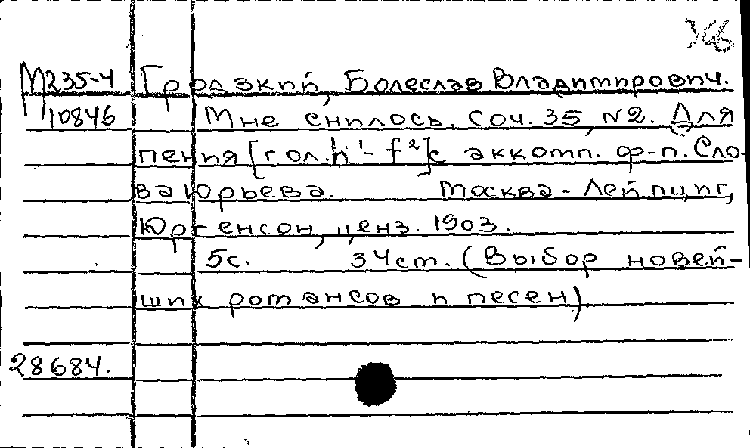 М235-4 Гродзкий, Болеслав Владимирович.
10846 Мне снилось. Соч. 35, N2. Для
пения [гол. h¹- f²] с аккомп. ф-п. Сло-
ва Юрьева. Москва - Лейпциг,
Юргенсон, ценз. 1903.
5с. 34 cm. (Выбор новей-
ших романсов и песен)
28684.